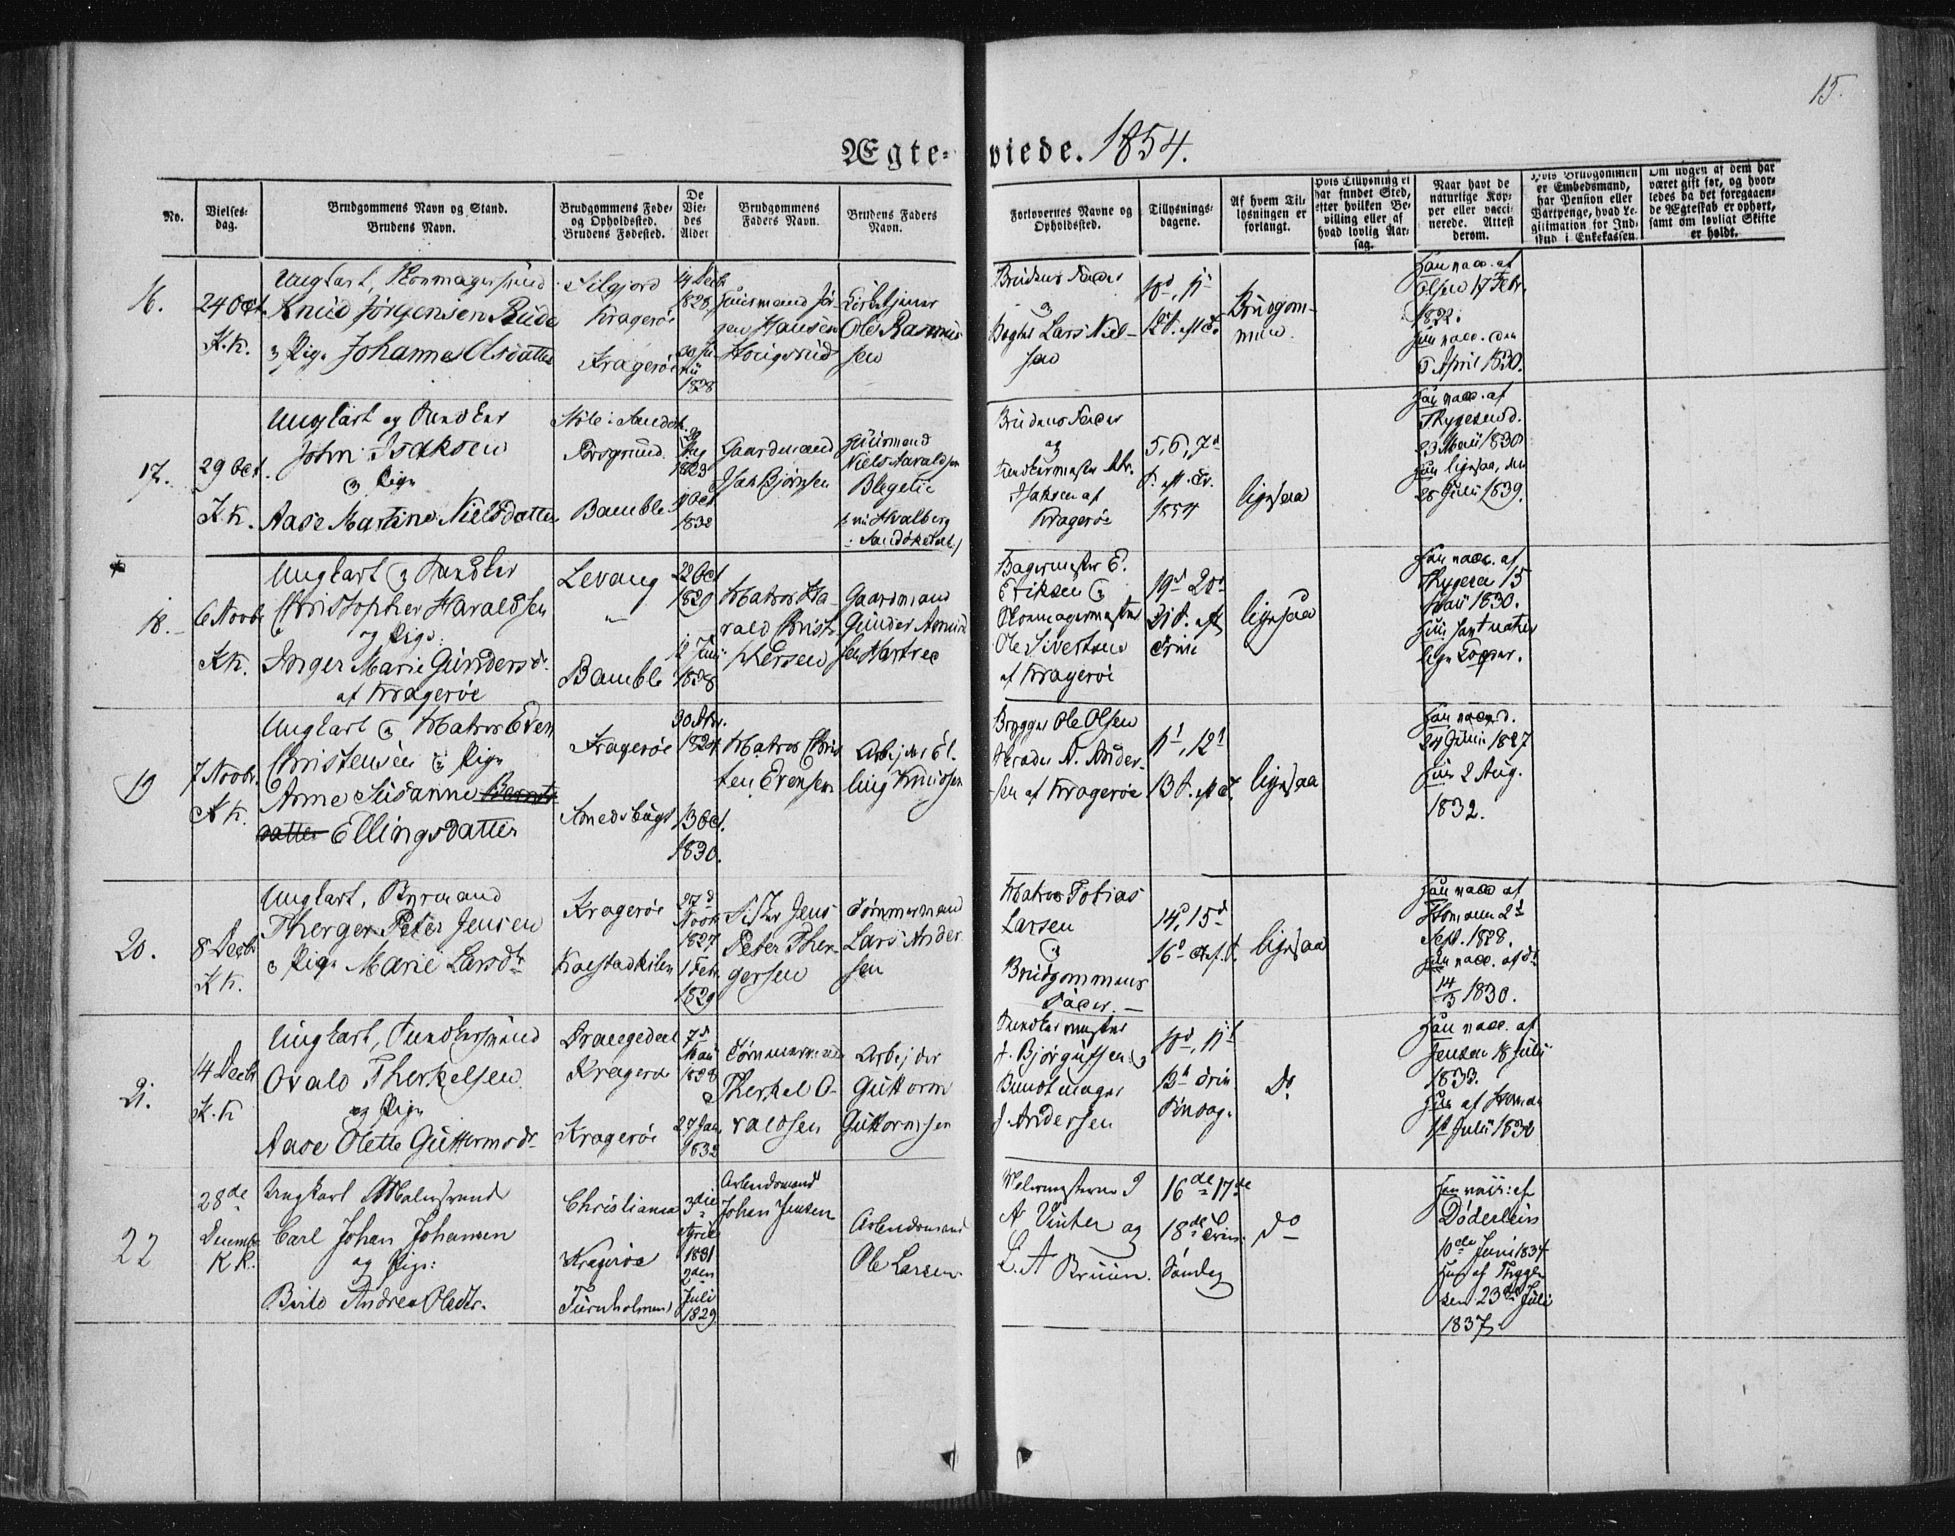 15.
Ægte-viede. 1854.
No.
Vielses-
dag.
Brudgommens Navn og Stand.
Brudens Navn.
Brudgommens Føde-
og Opholdssted.
Brudens Fødested.
De
Vie-
des
Alder
Brudgommens
Faders Navn.
Brudens Faders
Navn.
Forlovernes Navne og
Opholdssted.
Tillysnings-
dagene.
Af hvem Til-
lysningen er
forlangt.
Hvis Tillysning ei
har fundet Sted,
efter hvilken Be-
villing eller af
hvad lovlig Aar-
sag.
Naar havt de
naturlige Kop-
per eller vacci-
nerede. Attest
derom.
Hvis Brudgommen
er Embedsmand,
har Pension eller
Vartpenge, hvad Le-
gitimation for Ind-
skud i Enkekassen.
Om nogen af dem har
været gift før, og hvor-
ledes da det foregaaen-
de Ægteskab er ophørt,
samt om lovligt Skifte
er holdt.
16.
24 Oct.
K.K.
Ungkarl, Skomagersvend
Knud Jörgensen
Pige Johanne Olsdatter
Silgjord
Kragerøe
Kragerøe
14 Decbr
1828
1828
Huusmand Jør-
gen Hansen
Kirketjener
Ole Rasmus-
sen
Brudens Fader
og
Lars Niel-
sen
Brudgom-
men.
Han vacc. af
Olsen 17 Febr.
1832.
Hun vacc. den
5 April 1830.
17.
29 Oct.
K.K.
Ungkarl og Snedker
John Isaksen
og Pige
Aase Martine Nielsdatter
Porsgrund.
Bamble
1823
Oct
1832
Gaardmand
Isak Bjørnsen
Huusmand
Niels Haraldsen
Brudens Fader
og
Snedkermester Abr.
Isaksen af
Kragerøe
5, 6, 7d
1854
ligesaa
Han vacc. af
Thygesen d.
23 Mai 1830
Hun ligesaa, den
28 Juli 1839.
18.
6 Novbr
K.K.
Ungkarl og Snedker
Christopher Haraldsen
og Pige
Inger Marie Gundersdr.
af Kragerøe
Levang
"
Bamble
22 Oct
1829
12 Juni
1828
Matros Ha-
rald Christo-
phersen
Gaardmand
Gunder Asmund-
sen
Bagermester E.
Eriksen og
Skomagermester
Ole Sivertsen
af Kragerøe
19d 20d
21 d. efter
Trini
ligesaa
Han vacc. af
Thygesen 15
Mai 1830.
Hun havt natur-
lige Kopper.
19
7 Novbr.
K.K.
Ungkarl og Matros Even
Christensen og Pige
Anne Susanne Bernts-
datter Ellingsdatter
Kragerøe
30 Apr.
1824
13 Oct.
1830.
Matros Chris-
ten Evensen
Arbejder El-
ling Knudsen
Brygger Ole Olsen
A. Ander-
sen af Kragerøe
11d, 12d
ligesaa
Han vacc d.
24 Juni 1827
Hun 2 Aug.
1832.
20.
8 Decbr
K.K.
Ungkarl, Styrmand
Therger Peter Jensen
og Pige Marie Larsdr
Kragerøe
27d
Novbr
1827
1 Febr.
1829
Fisker Jens
Peter Ther-
gersen
Tømmermand
Lars Ander-
sen
Matros Tobias
Larsen
og
Brudgommens
Fader
14d, 15d
ligesaa
Han vacc af
Homann 2d
Sept. 1828.
Hun vacc. af Do
14/3 1830.
21.
14 Decbr
K.K
Ungkarl, Snedkersvend
Ovald Therkelsen
og Pige
Aase Olette Guttormsdr
Drangedal
Kragerøe
Kragerøe
7d
Mai
27 Jan
1832
Tømmermand
Therkel O-
valdsen
Arbejder
Guttorm
Guttormsen
Snedkermester
J. Bjørgulfsen og
Bundtmager
J. Andersen
10d, 11d
13d Trin
Søndag.
Do
Han vacc. af
Jensen 18 Juli
1833.
Hun af Homan
1d Juli 1832
22
28de
Decembr
K.K.
Ungkarl Malersvend
Carl Johan Johansen
og Pige:
Berte Andrea Olsdtr.
Christiania
Kragerøe
Furuholmen
3die
April
1831
2den
Juli
1829
Arbeidsmand
Johan Jensen
Arbeidsmand
Ole Larsen
Malermesterne J
A Vinter og
L. A Bruun.
16de 17de
18de Trin:
Søndag
Do
Han vacc: af
Døderlein
10de Juni 1834
Hun af Thyge-
sen 23de Juli
1837.